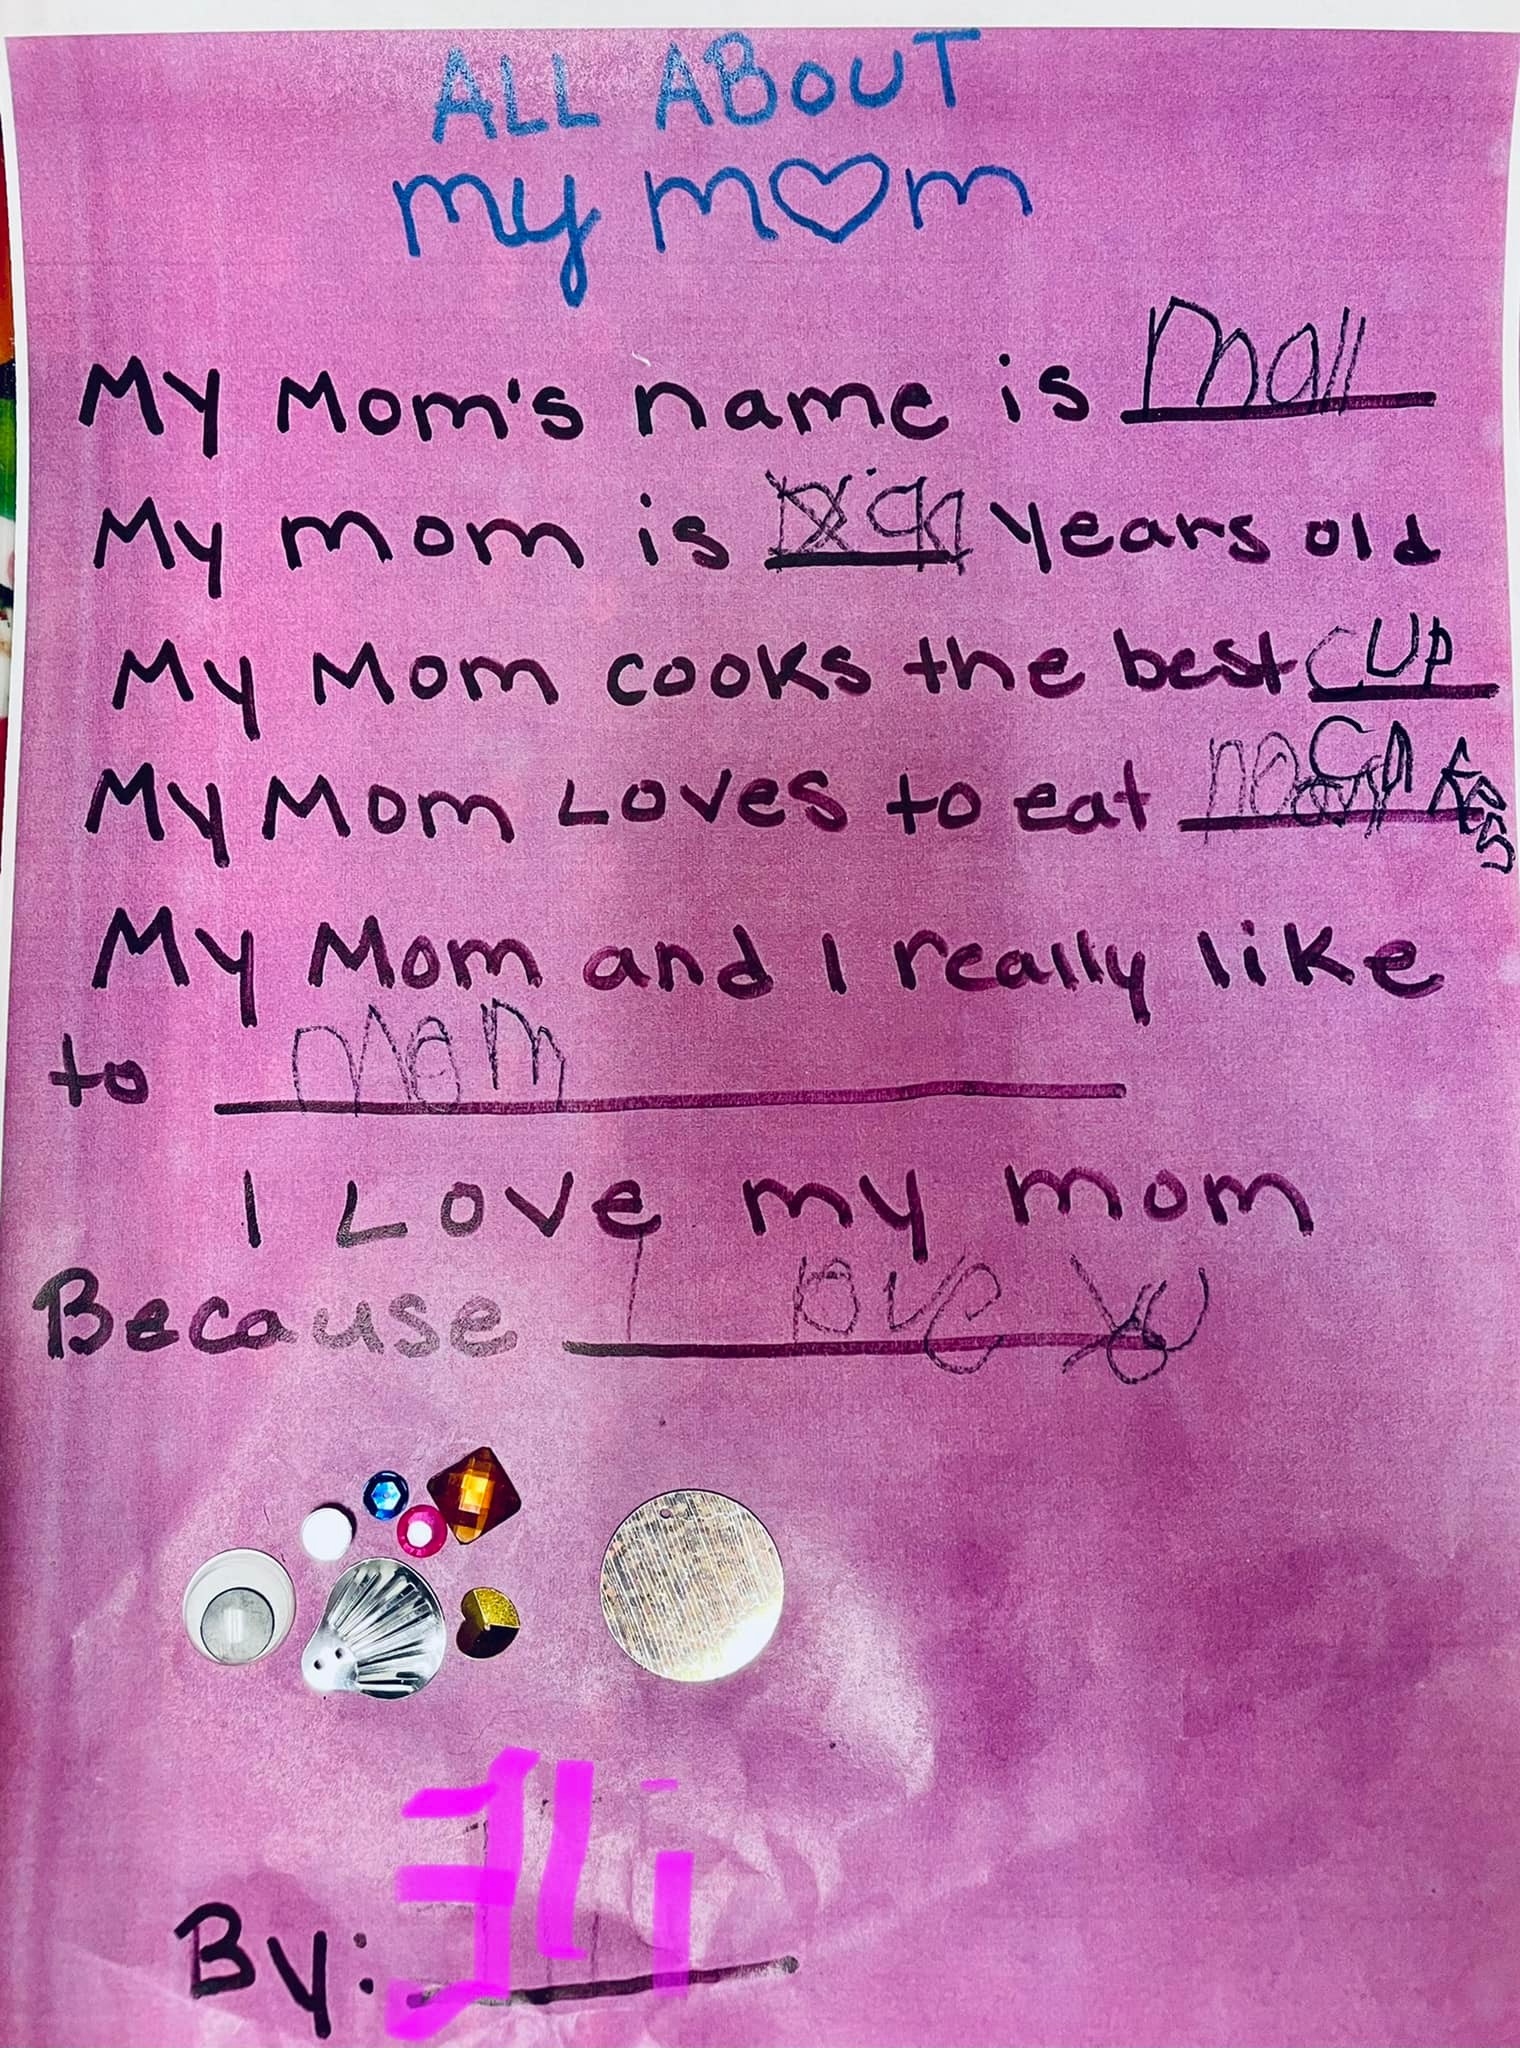 ALL ABOUT
my mom
My Mom's name is Mall
My mom is years old
My Mom cooks the best CUP
My Mom Loves to eat
My Mom and I really like
to Mom
I Love my mom
Because I love you
By: